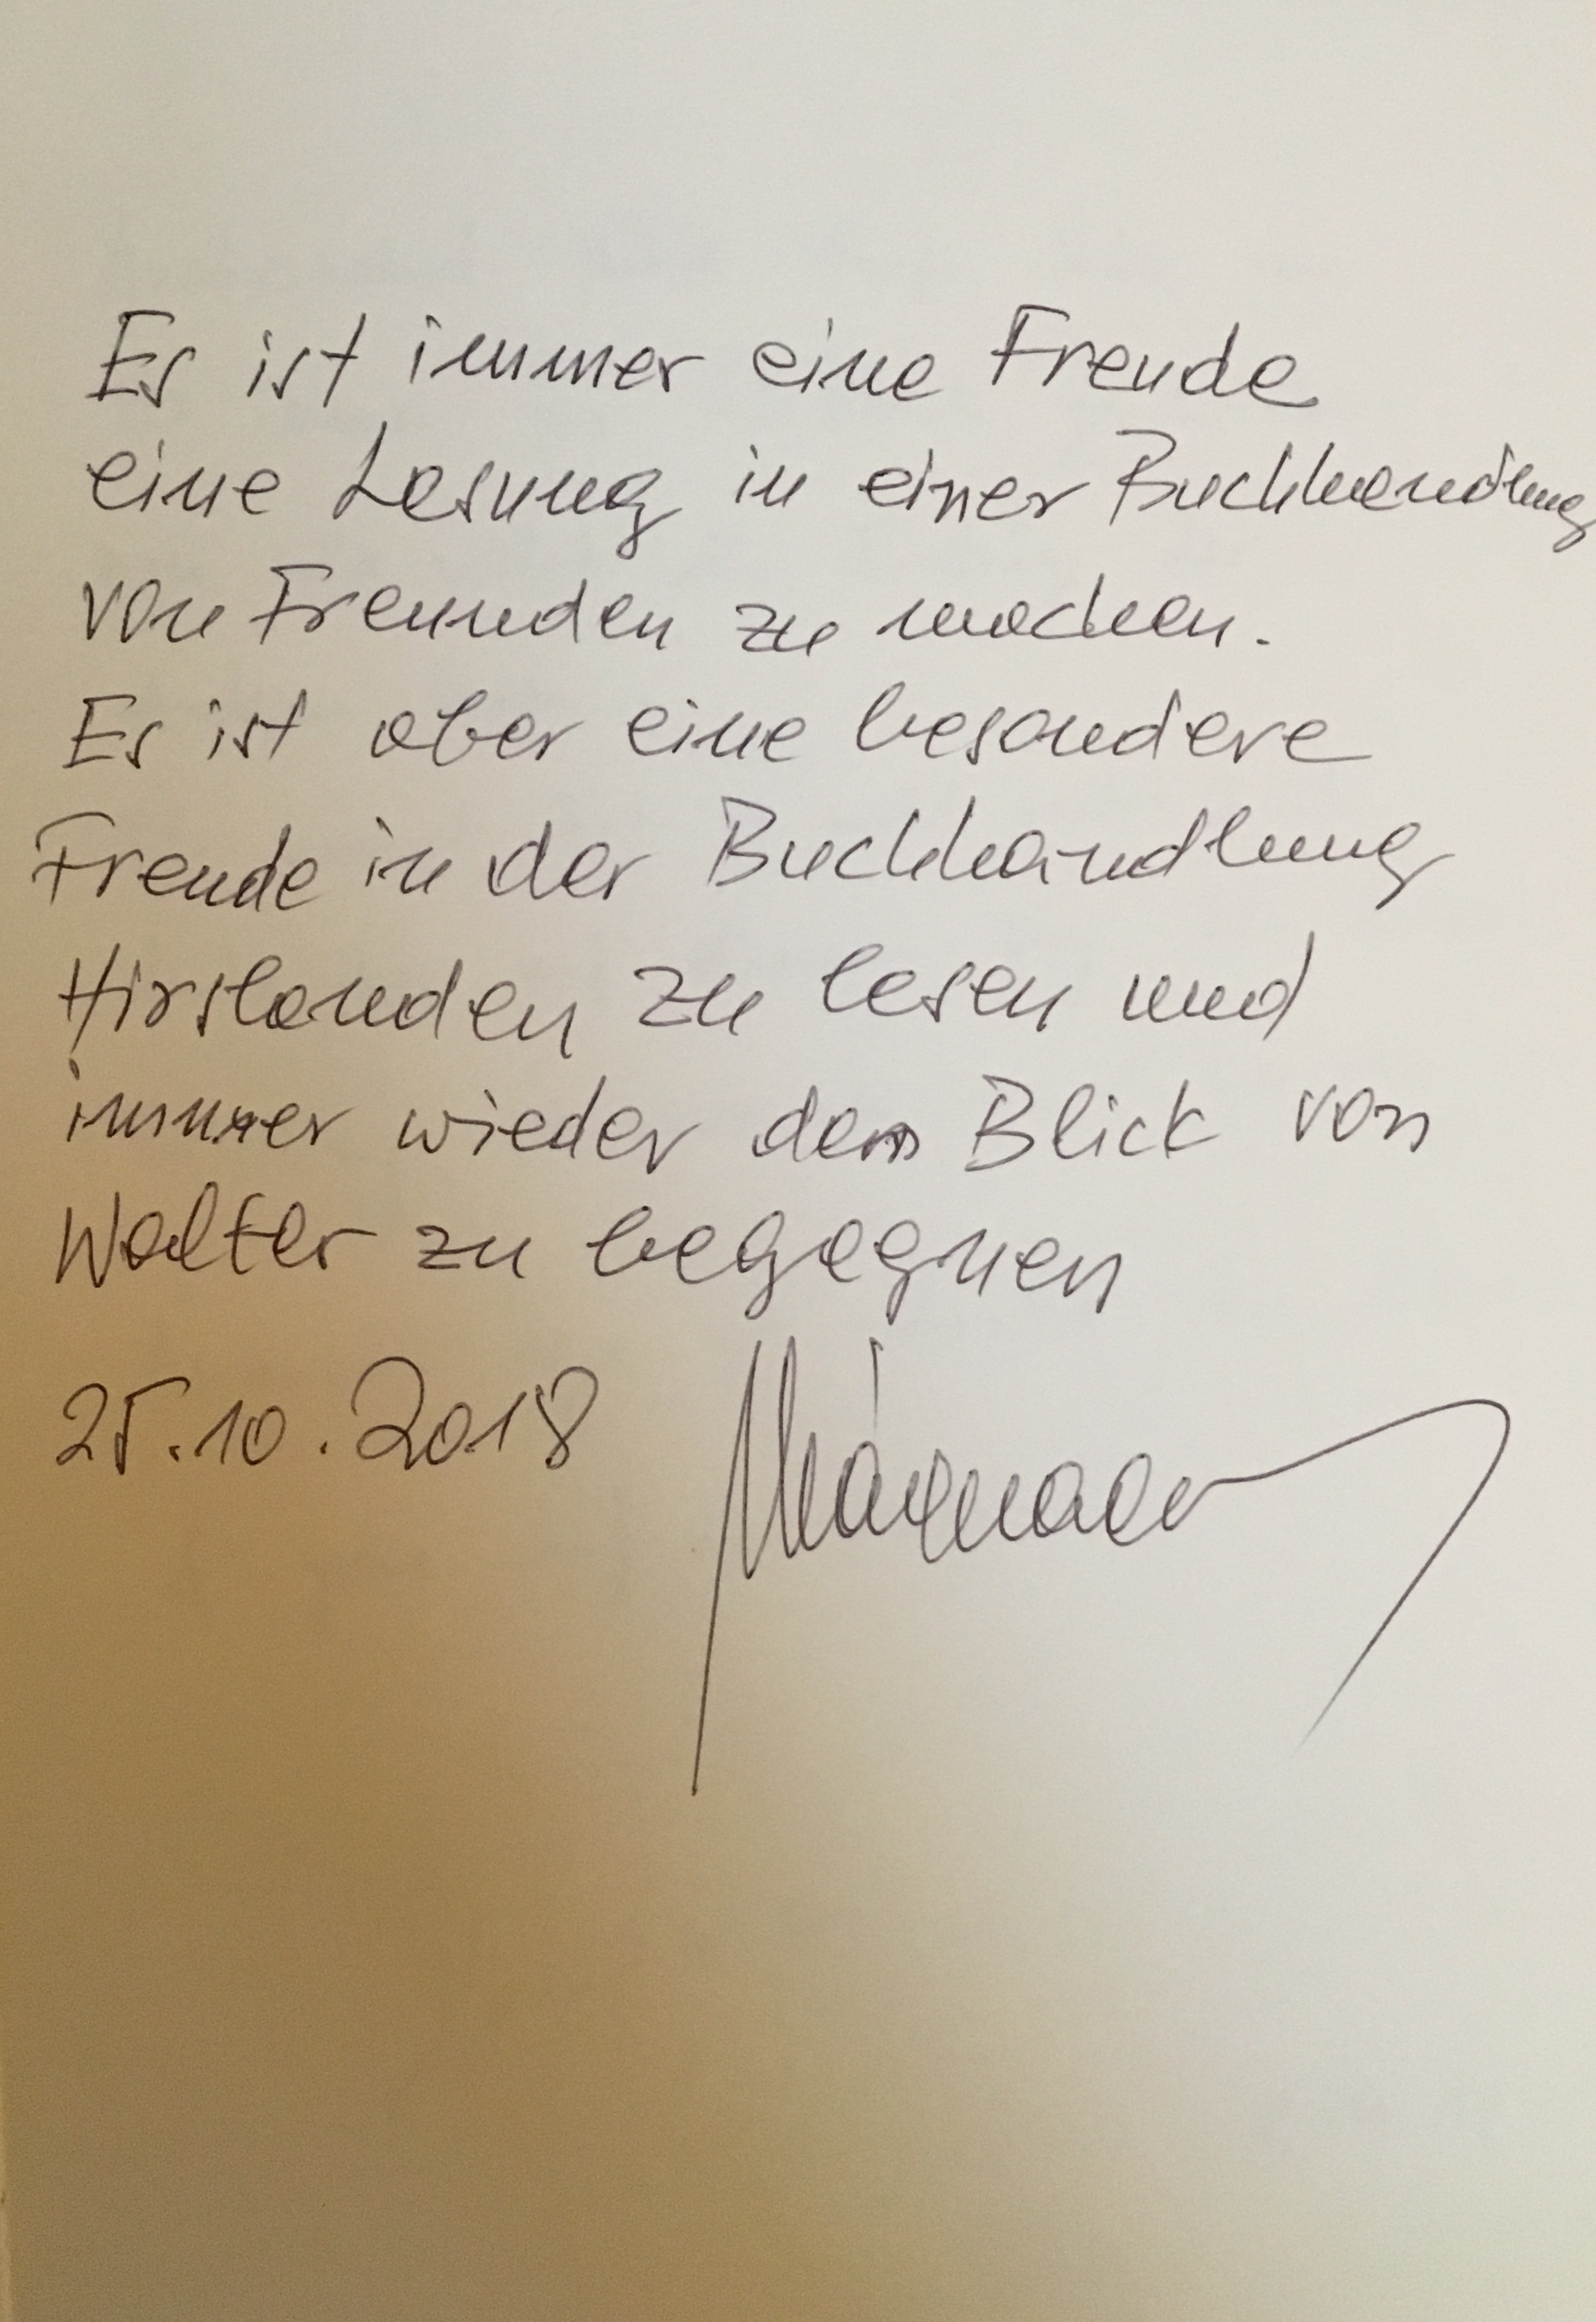 Es ist immer eine Freude
eine Lesung in einer Buchhandlung
von Freunden zu machen.
Es ist aber eine besondere
Freude in der Buchhandlung
Hirslanden zu lesen und
immer wieder dem Blick von
Walter zu begegnen
25.10.2018